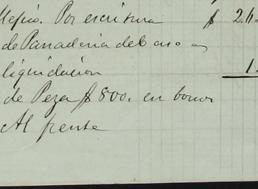 Mejia. Por escritura $ 2.6
de Panaderia del caso
liquidacion 1.
de Peza $ 800. en bonos
Al frente